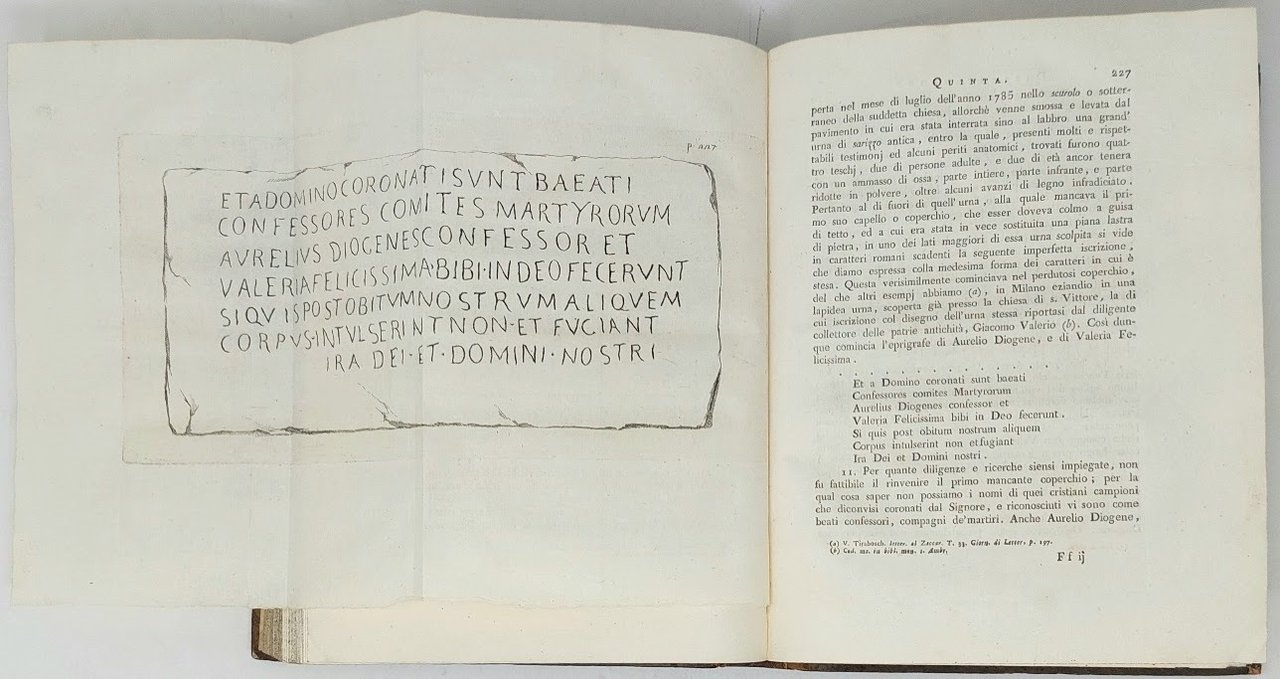 p. 227
ETADOMINOCORONATISVNTBAEATI
CONFESSORES COMITES MARTYRORVM
AVRELIVS DIOGENESCONFESSOR ET
VALERIAFELICISSIMA·BIBI·INDEOFECERVNT
SIQVISPOSTOBITVMNOSTRVMALIQVEM
CORPVS·INTVLSERINTNON·ET FVGIANT
IRA DEI·ET·DOMINI·NOSTRI
QUINTA.
227
perta nel mese di luglio dell'anno 1785 nello scurolo o sotter-
raneo della suddetta chiesa, allorchè venne smossa e levata dal
pavimento in cui era stata interrata sino al labbro una grand'
urna di sarizzo antica, entro la quale, presenti molti e rispet-
tabili testimonj ed alcuni periti anatomici, trovati furono quat-
tro teschj, due di persone adulte, e due di età ancor tenera
con un ammasso di ossa, parte intiere, parte infrante, e parte
ridotte in polvere, oltre alcuni avanzi di legno infradiciato.
Pertanto al di fuori di quell'urna, alla quale mancava il pri-
mo suo capello o coperchio, che esser doveva colmo a guisa
di tetto, ed a cui era stata in vece sostituita una piana lastra
di pietra, in uno dei lati maggiori di essa urna scolpita si vide
in caratteri romani scadenti la seguente imperfetta iscrizione,
che diamo espressa colla medesima forma dei caratteri in cui è
stesa. Questa verisimilmente cominciava nel perdutosi coperchio,
del che altri esempj abbiamo (a), in Milano eziandio in una
lapidea urna, scoperta già presso la chiesa di s. Vittore, la di
cui iscrizione col disegno dell'urna stessa riportasi dal diligente
collettore delle patrie antichità, Giacomo Valerio (b). Così dun-
que comincia l'eprigrafe di Aurelio Diogene, e di Valeria Fe-
licissima.
. . . . . . . . . . . . . .
Et a Domino coronati sunt baeati
Confessores comites Martyrorum
Aurelius Diogenes confessor et
Valeria Felicissima bibi in Deo fecerunt.
Si quis post obitum nostrum aliquem
Corpus intulserint non etfugiant
Ira Dei et Domini nostri.
11. Per quante diligenze e ricerche siensi impiegate, non
fu fattibile il rinvenire il primo mancante coperchio; per la
qual cosa saper non possiamo i nomi di quei cristiani campioni
che diconvisi coronati dal Signore, e riconosciuti vi sono come
beati confessori, compagni de'martiri. Anche Aurelio Diogene,
(a) V. Tirabosch. letter. al Zaccar. T. 33. Giorn. di Letter. p. 197.
(b) Cod. ms. in bibl. mon. s. Ambr.
Ff ij